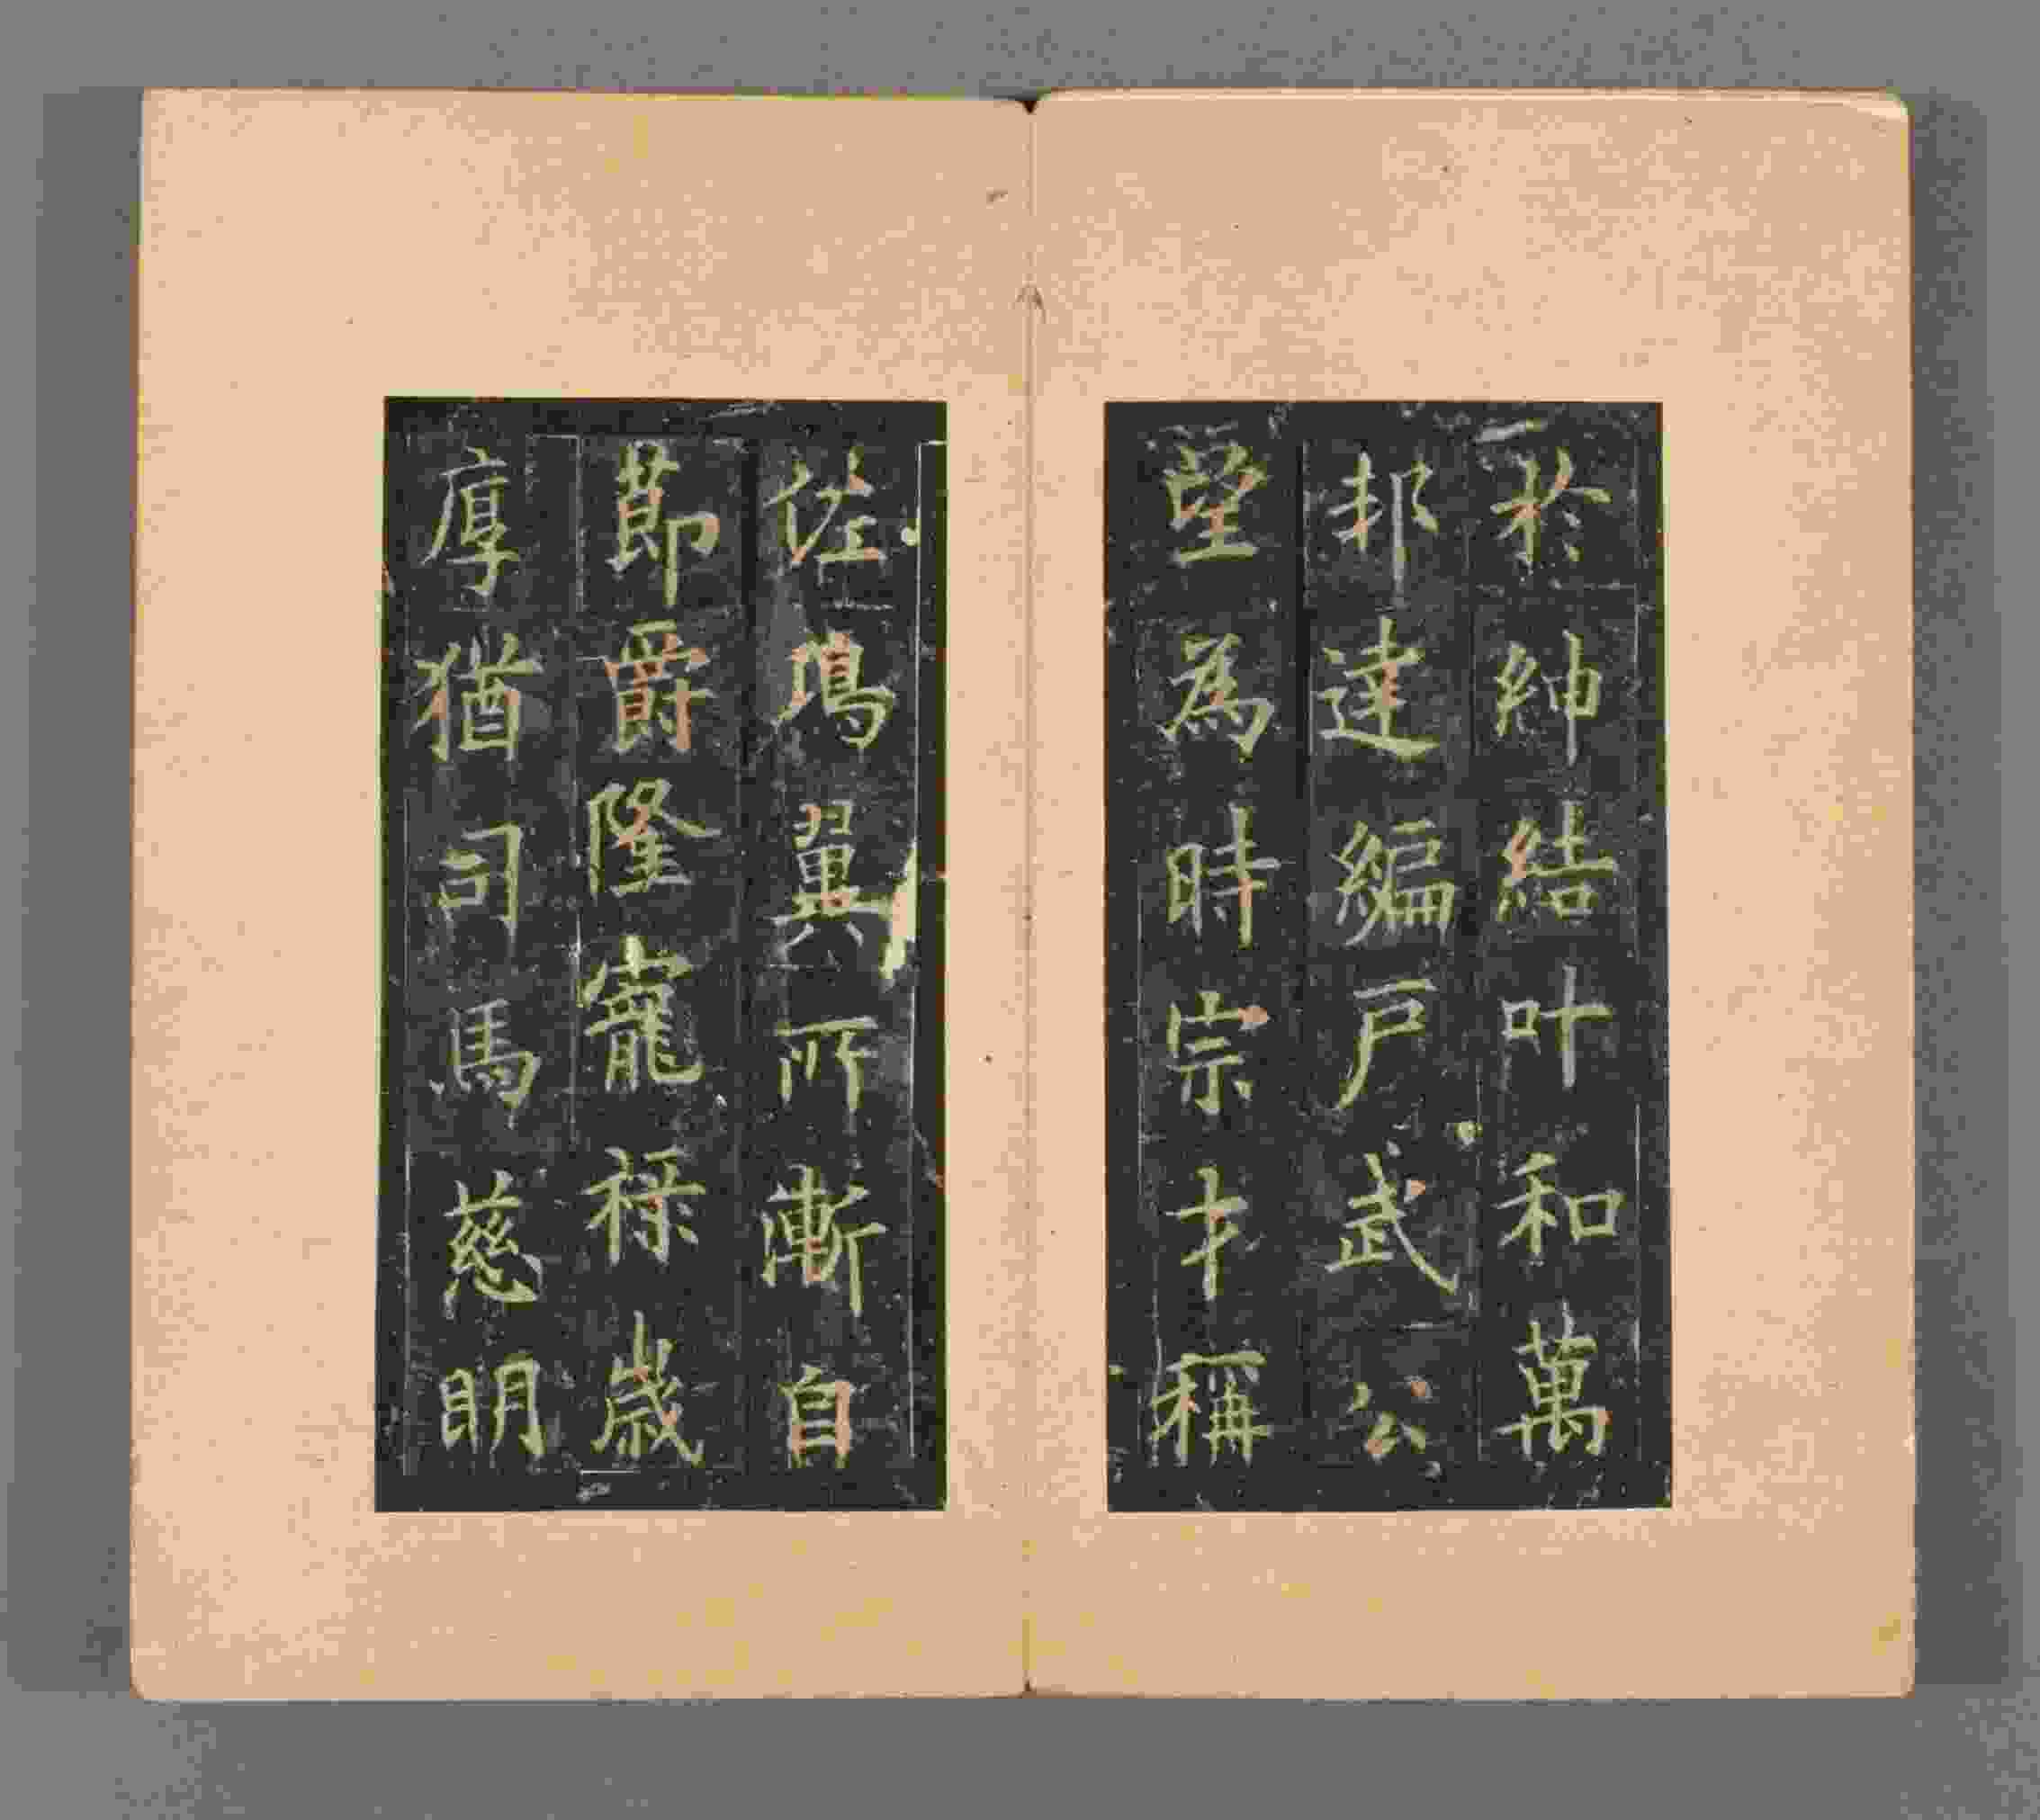 於紳結叶和萬
邦達編戸武公
望為時宗才稱
佐鴻翼所漸自
莭爵隆寵祿歲
厚猶司馬慈明